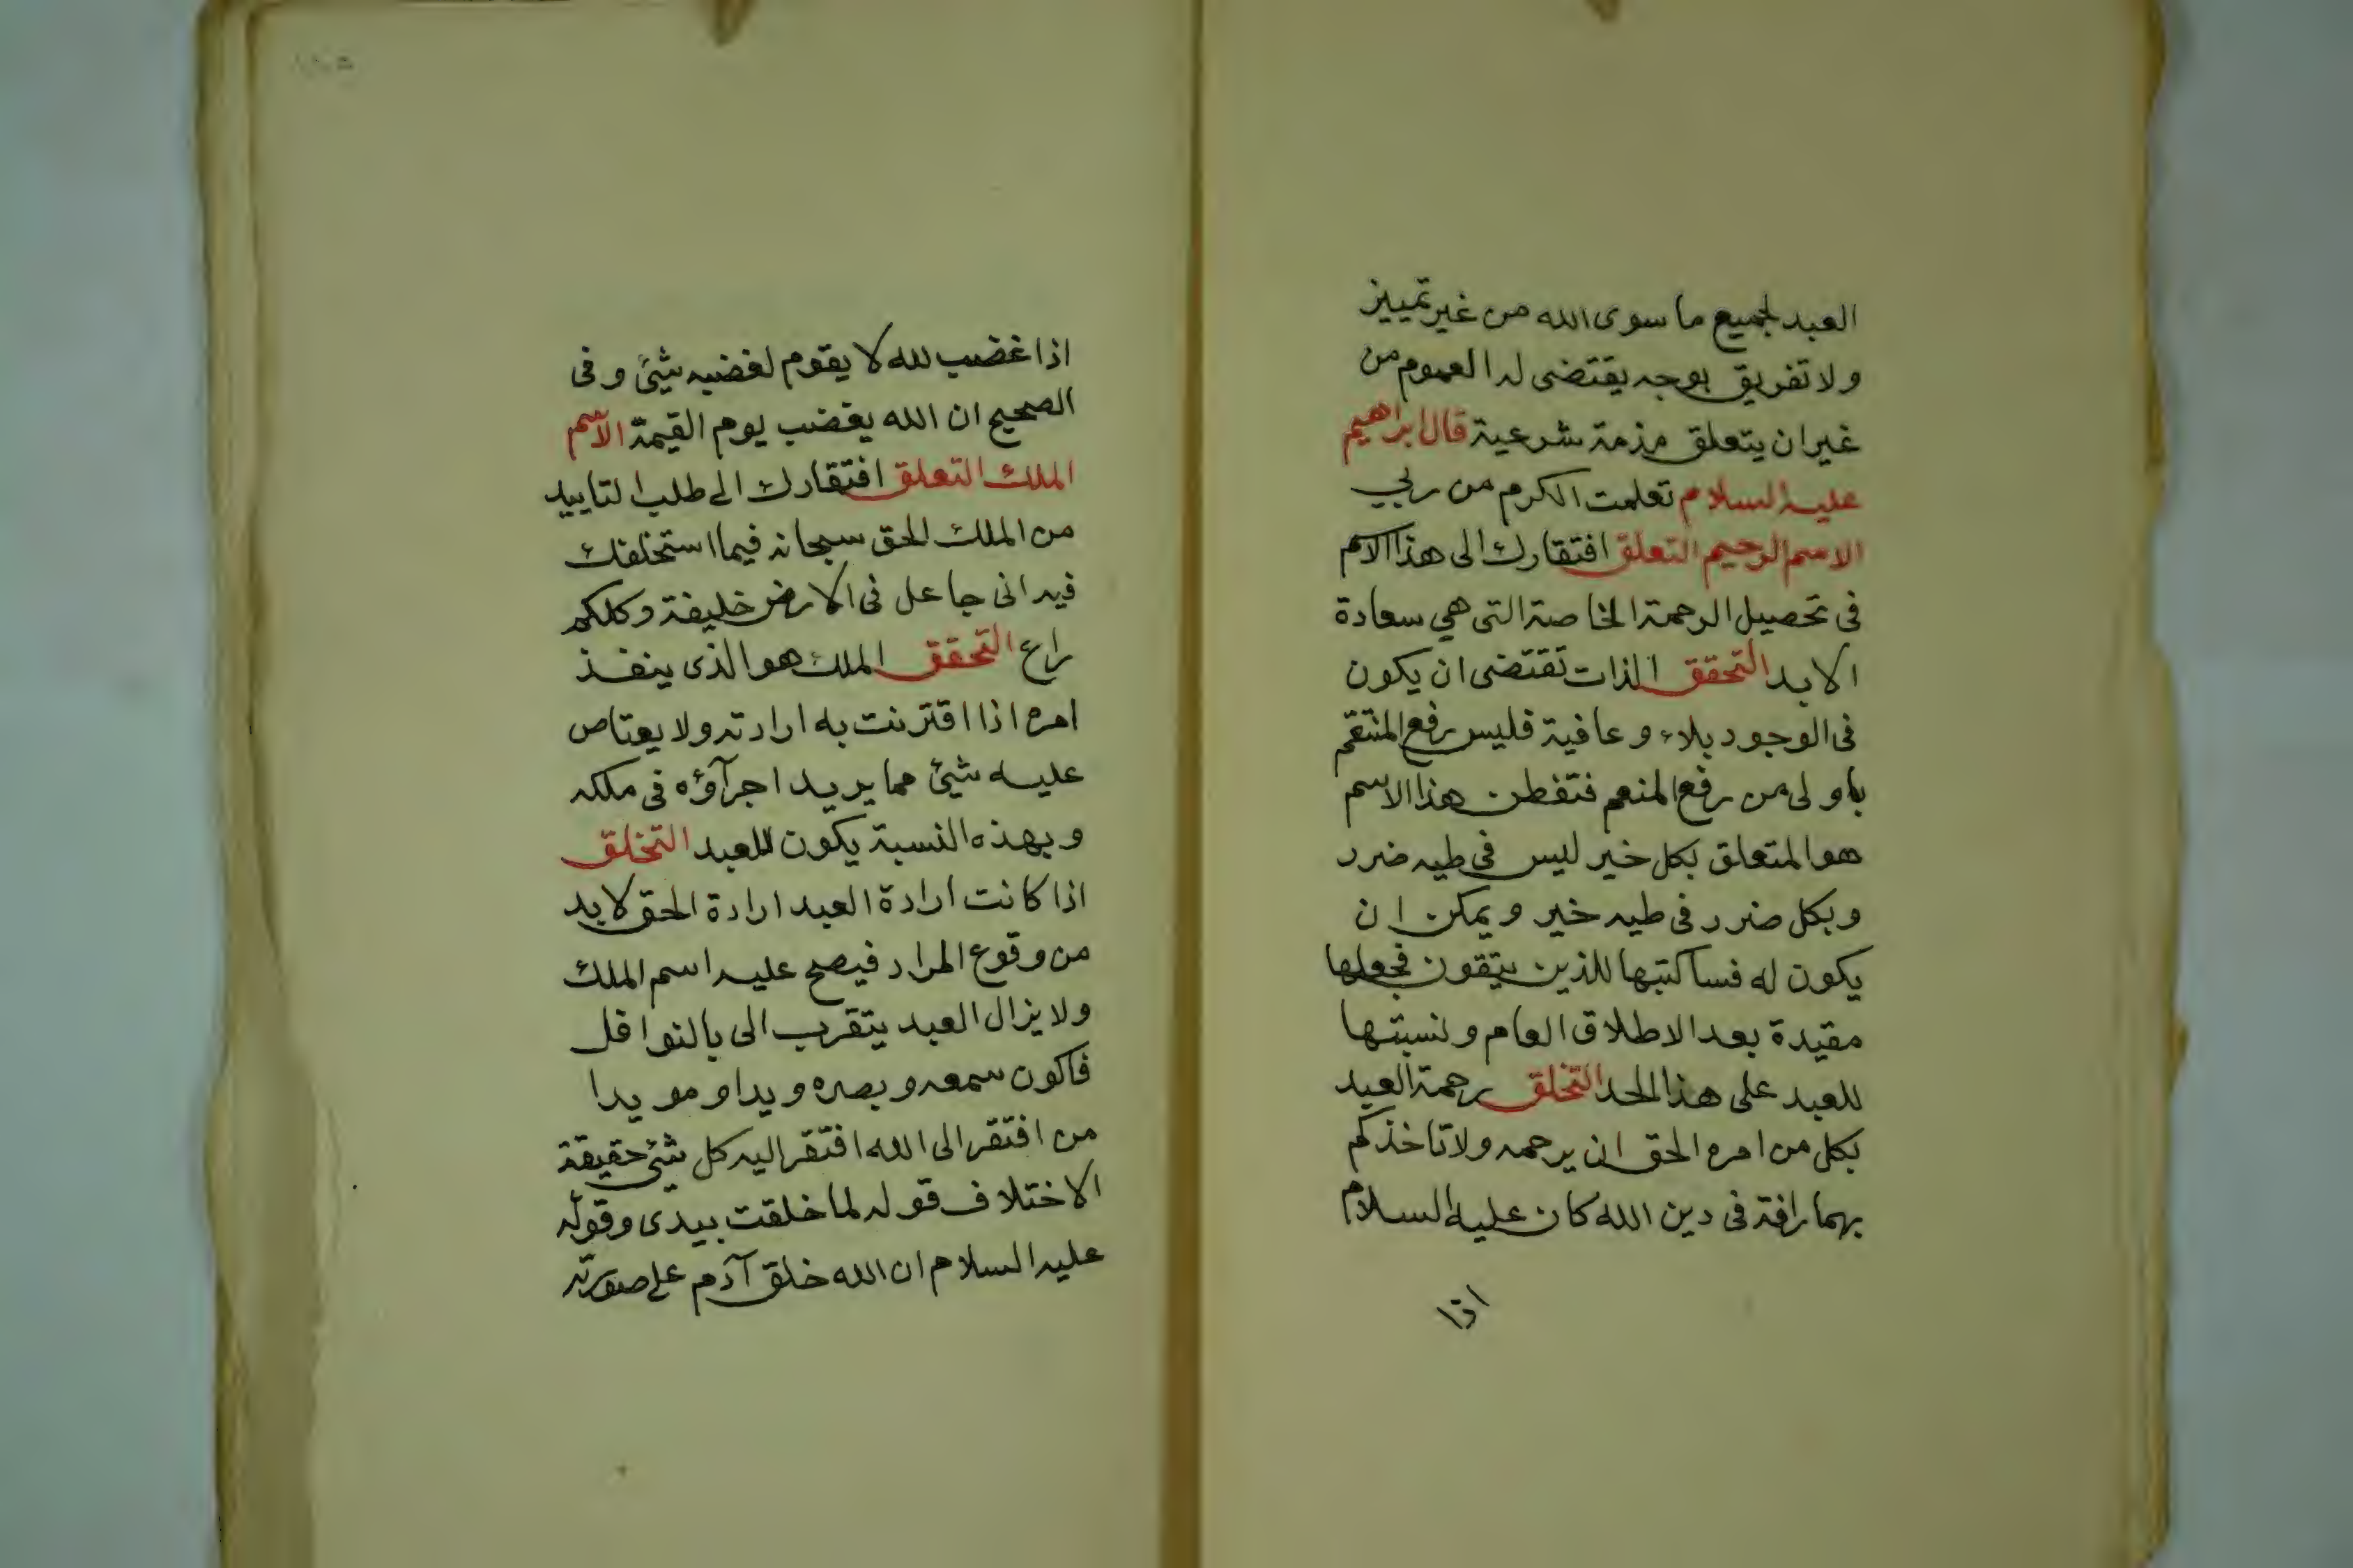 العبد لجميع ما سوى الله من غير تمييز
ولا تفريق بوجه يقتضى له العموم من
غير ان يتعلق مذمة شرعية قال ابراهيم
عليه السلام تعلمت الكرم من ربي
الاسم الرحيم التعلق افتقارك الى هذا الاسم
فى تحصيل الرحمة الخاصة التى هي سعادة
الابد التحقق الذات تقتضى ان يكون
فى الوجود بلاء وعافية فليس رفع المنتقم
باولى من رفع المنعم فتفطن هذا الاسم
هو المتعلق بكل خير ليس فى طيه ضرر
وبكل ضرر فى طيه خير ويمكن ان
يكون له فساكتبها للذين يتقون فجعلها
مقيدة بعد الاطلاق العام ونسبتها
للعبد على هذا الحد التخلق رحمة العبد
بكل من امره الحق ان يرحمه ولا تاخذكم
بهما رافة فى دين الله كان عليه السلام
اذا
اذا غضب لله لا يقوم لغضبه شيئ وفى
الصحيح ان الله يغضب يوم القيمة الاسم
الملك التعلق افتقارك الى طلب التاييد
من الملك الحق سبحانه فيما استخلفك
فيه انى جاعل فى الارض خليفة وكلكم
راع التحقق الملك هو الذى ينفذ
امره اذا اقترنت به ارادته ولا يعتاص
عليه شيئ مما يريد اجرآؤه فى ملكه
وبهذه النسبة يكون للعبد التخلق
اذا كانت ارادة العبد ارادة الحق لابد
من وقوع المراد فيصح عليه اسم الملك
ولا يزال العبد يتقرب الى بالنوافل
فاكون سمعه وبصره ويدا ومويدا
من افتقر الى الله افتقر اليه كل شئ حقيقة
الاختلاف قوله لما خلقت بيدى وقوله
عليه السلام ان الله خلق آدم على صورته